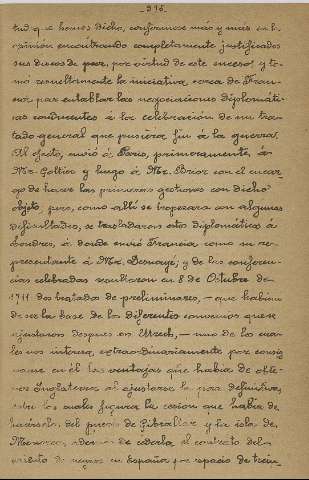 - 236 -
tud que hemos dicho, confirmose más y más en la
opinión encontrando completamente justificados
sus deseos de paz, por virtud de este suceso, y to-
mó resueltamente la iniciativa cerca de Fran-
cia para entablar las negociaciones diplomáti-
cas conducentes á la celebración de un tra-
tado general que pusiera fin á la guerra.
Al efecto, envió á París, primeramente, á
Mr. Goltier y luego á Mr. Prior con el encar-
go de hacer las primeras gestiones con dicho
objeto, pero, como allí se tropezara con algunas
dificultades, se trasladaron estos diplomáticos á
Londres, á donde envió Francia como su re-
presentante á Mr. Desnayé; y de las conferen-
cias celebradas resultaron en 8 de Octubre de
1711 dos tratados de preliminares, - que habían
de ser la base de los diferentes convenios que se
ajustaron despues en Utrech, - uno de los cua-
les nos interesa, extraordinariamente por consig-
narse en él las ventajas que había de obte-
ner Inglaterra al ajustarse la paz definitiva,
entre las cuales figura la cesion que había de
hacérsele del puerto de Gibraltar y la isla de
Menorca, además de cederla el contrato del
asiento de negros en España por espacio de trein-